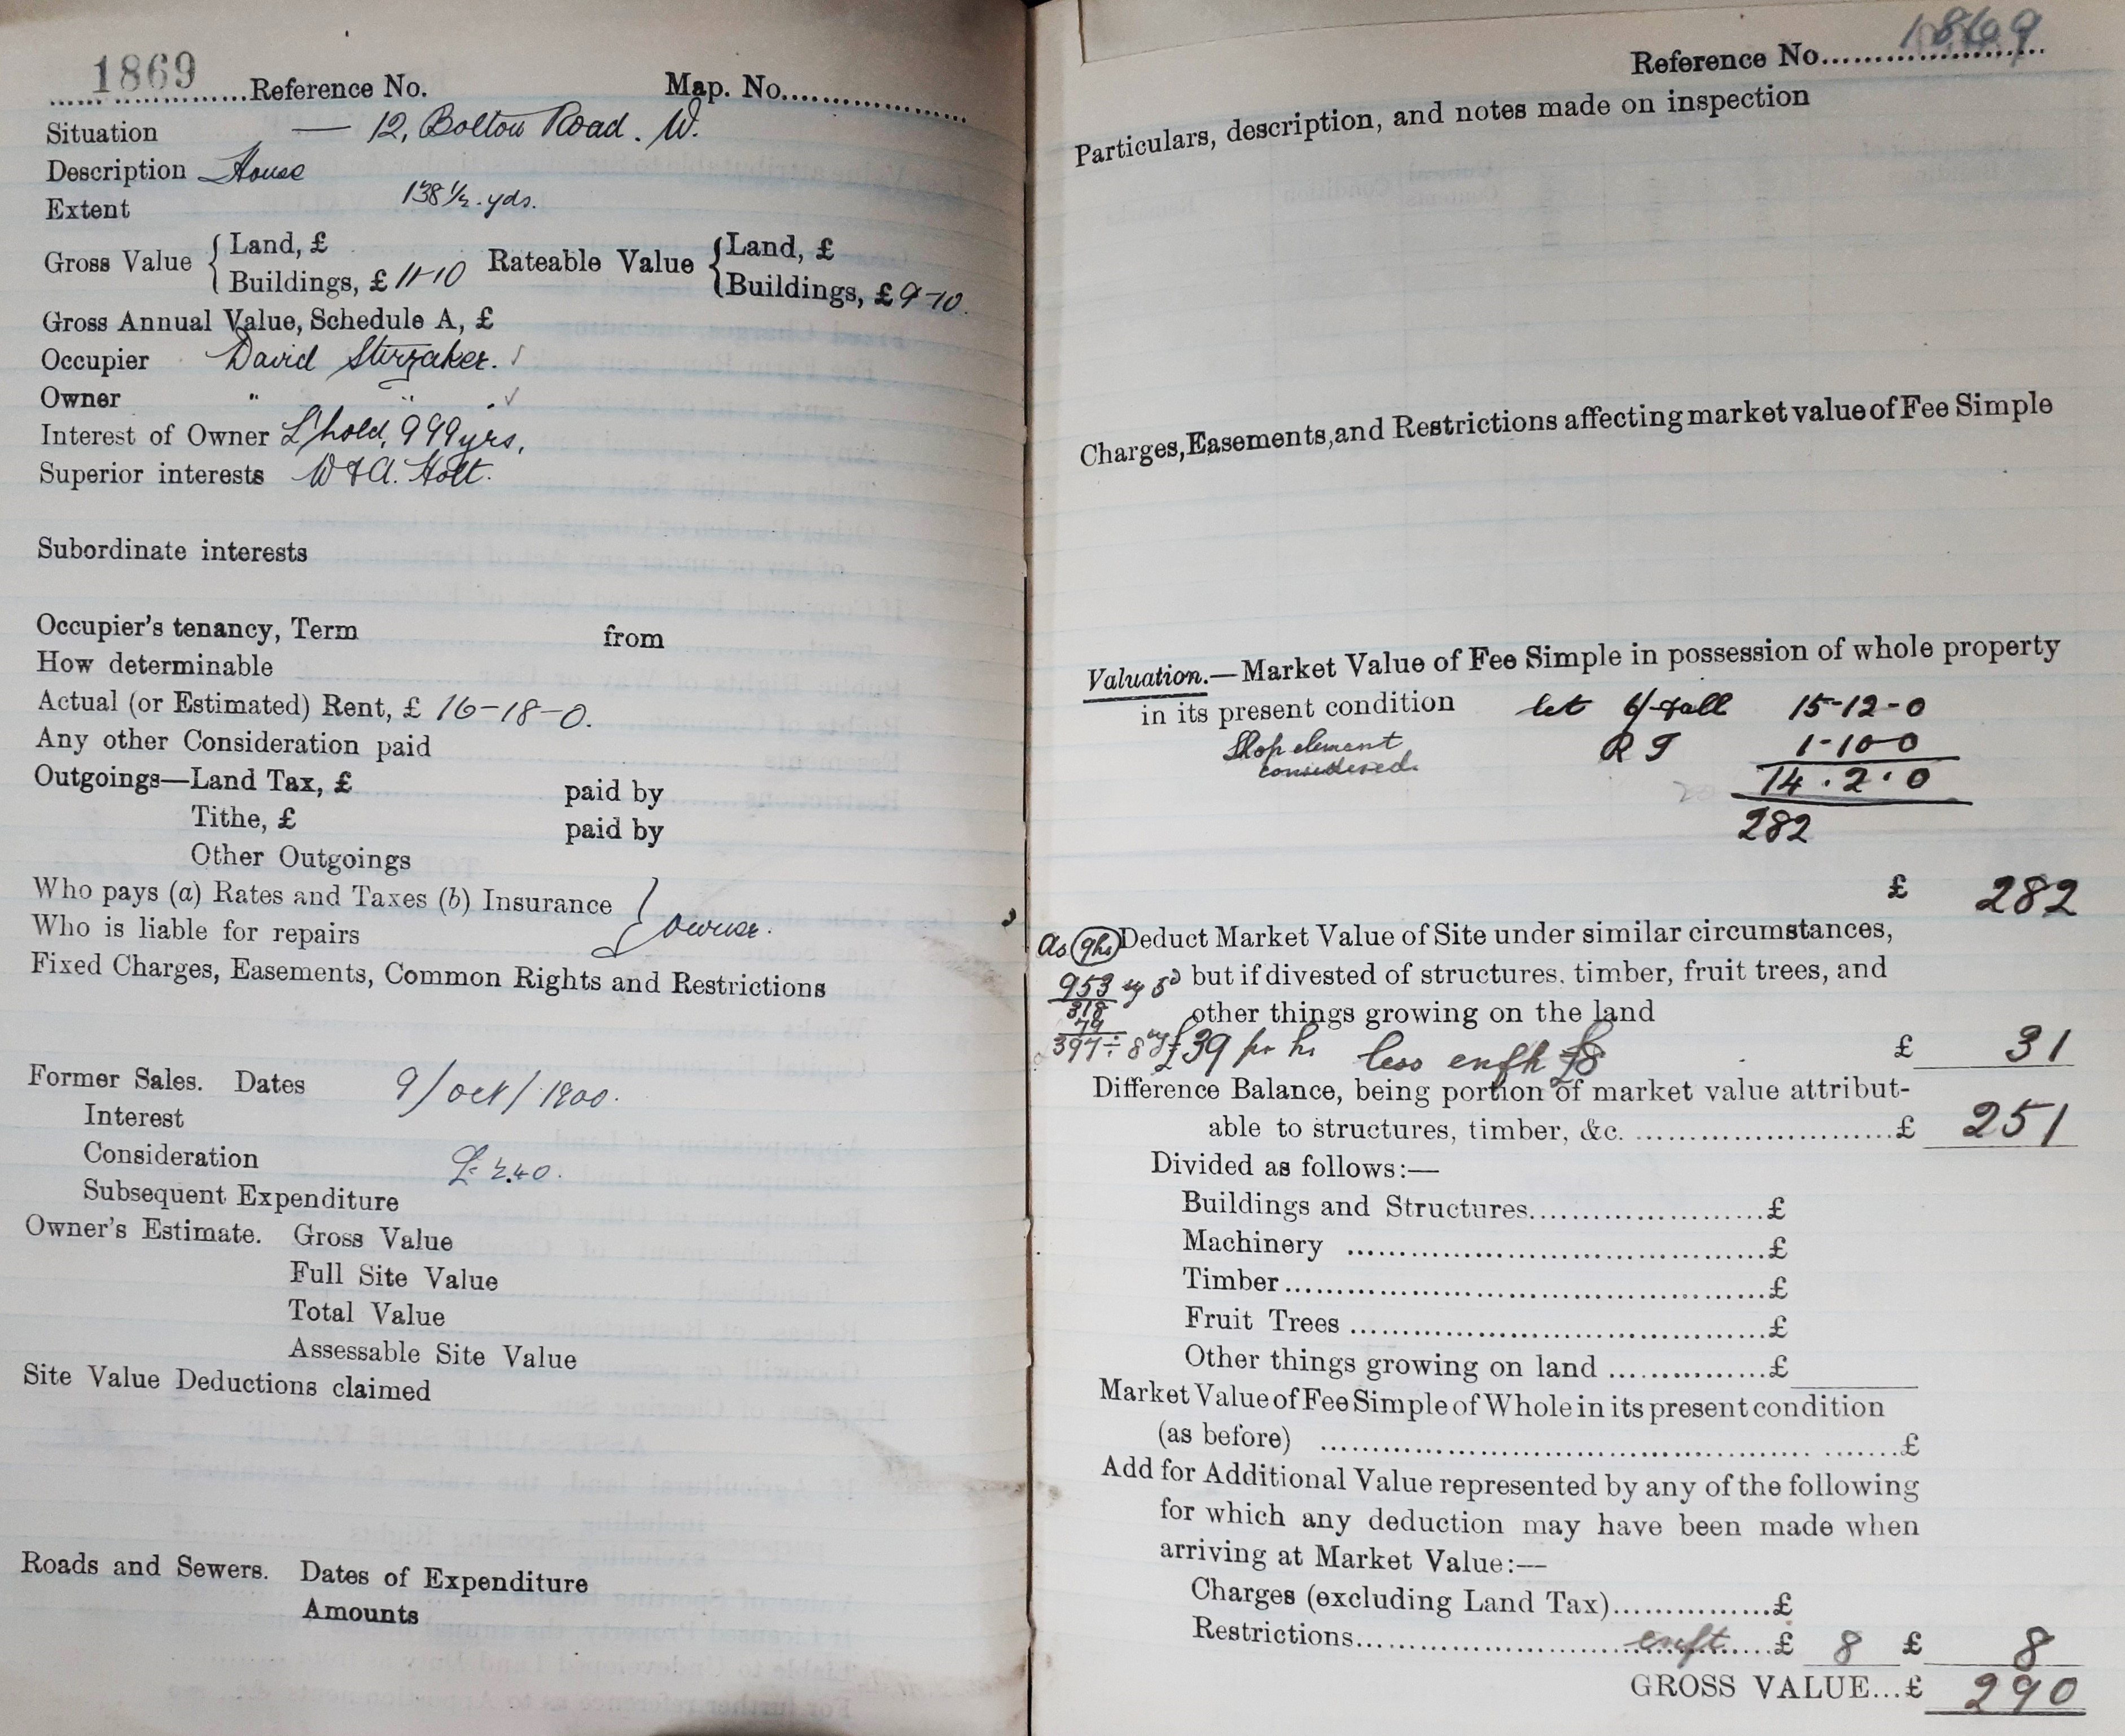 1869 Reference No. Map. No.
Situation — 12, Bolton Road. W.
Description House
Extent 138½ yds.
Gross Value { Land, £ Rateable Value { Land, £
Buildings, £ 11-10 Buildings, £ 9-10.
Gross Annual Value, Schedule A, £
Occupier David Stirzaker. ✓
Owner " " . ✓
Interest of Owner L'hold, 999 yrs,
Superior interests W & A. Holt.
Subordinate interests
Occupier's tenancy, Term from
How determinable
Actual (or Estimated) Rent, £ 16-18-0.
Any other Consideration paid
Outgoings—Land Tax, £ paid by
Tithe, £ paid by
Other Outgoings
Who pays (a) Rates and Taxes (b) Insurance } owner.
Who is liable for repairs
Fixed Charges, Easements, Common Rights and Restrictions
Former Sales. Dates 9/Oct/1900.
Interest
Consideration £240.
Subsequent Expenditure
Owner's Estimate. Gross Value
Full Site Value
Total Value
Assessable Site Value
Site Value Deductions claimed
Roads and Sewers. Dates of Expenditure
Amounts
Reference No. 1869
Particulars, description, and notes made on inspection
Charges, Easements, and Restrictions affecting market value of Fee Simple
Valuation.—Market Value of Fee Simple in possession of whole property
in its present condition let 6/- & all 15-12-0
Shop element R 1-10-0
considered. 20 14.2.0
282
£ 282
As Deduct Market Value of Site under similar circumstances,
953 but if divested of structures, timber, fruit trees, and
318 other things growing on the land
79
397 ÷ 8 £39 less enfh £8 £ 31
Difference Balance, being portion of market value attribut-
able to structures, timber, &c. £ 251
Divided as follows:—
Buildings and Structures £
Machinery £
Timber £
Fruit Trees £
Other things growing on land £
Market Value of Fee Simple of Whole in its present condition
(as before) £
Add for Additional Value represented by any of the following
for which any deduction may have been made when
arriving at Market Value:—
Charges (excluding Land Tax) £
Restrictions enft. £ 8 £ 8
GROSS VALUE...£ 290